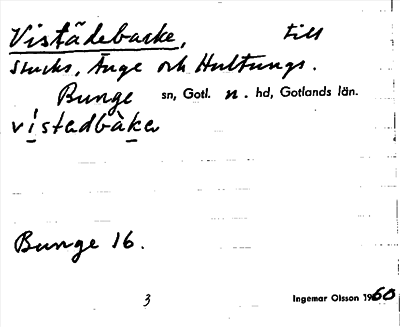 Vistädebacke, till
Stucks, Änge och Hultungs.
Bunge sn, Gotl. n. hd, Gotlands län.
vi̱stadbàka
Bunge 16.
3 Ingemar Olsson 1960